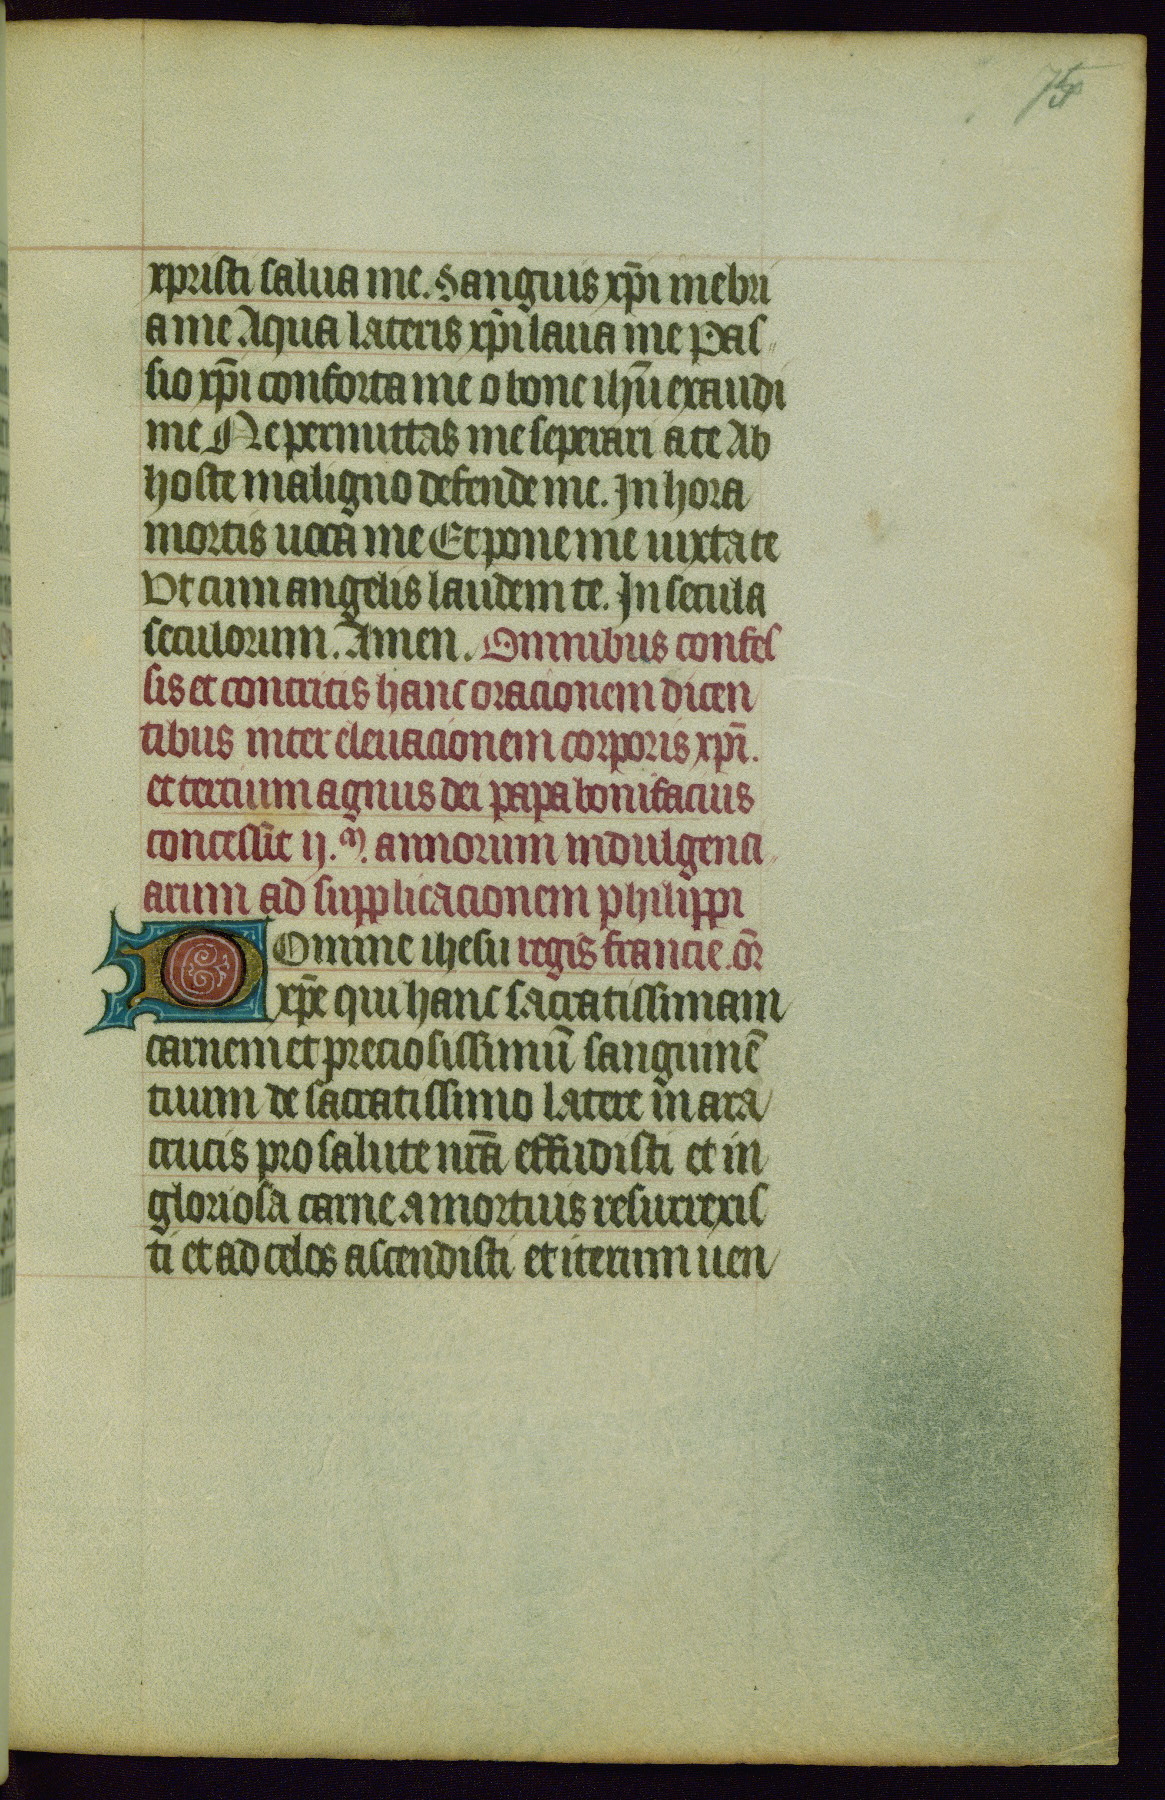 75
xpristi salua me. Sanguis xp̄i inebri
a me Aqua lateris xp̄i laua me Pas
sio xp̄i conforta me o bone ihū exaudi
me Ne permittas me seperari a te Ab
hoste maligno defende me. In hora
mortis uoca me Et pone me iuxta te
Vt cum angelis laudem te. In secula
seculorum. Amen. Omnibus confes
sis et contritis hanc oracionem dicen
tibus inter eleuacionem corporis xp̄i.
et tercium agnus dei papa bonifacius
concessit ij.m. annorum indulgenci
arum ad supplicacionem philippi
Domine ihesu regis francie. or̄
xp̄e qui hanc sacratissimam
carnem et preciosissimū sanguinē
tuum de sacratissimo latere in ara
crucis pro salute nr̄a effudisti et in
gloriosa carne a mortuis resurrexis
ti et ad celos ascendisti et iterum uen